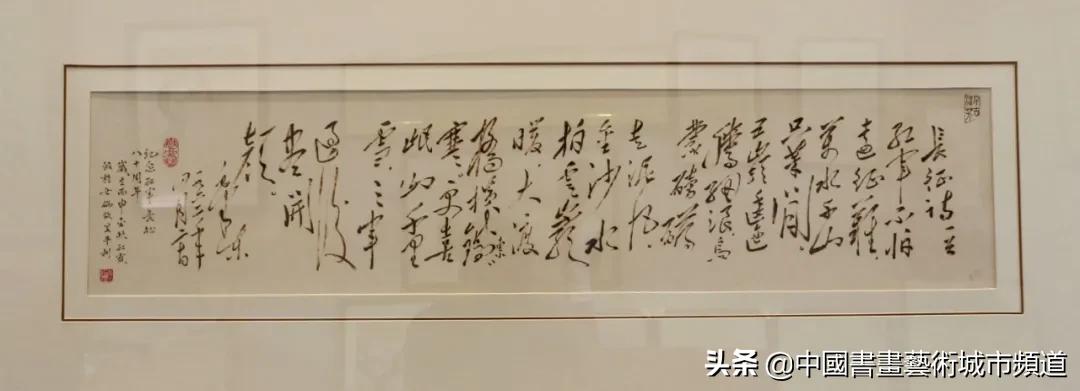 長征詩一首
紅軍不怕
遠征難
萬水千山
只等閒
五嶺逶迤
騰細浪烏
蒙磅礴
走泥丸
金沙水
拍雲崖
暖大渡
橋橫鐵索
寒更喜
岷山千里
雪三軍
過後
盡開
顏
毛澤東
一九六二年
四月二十日
紀念紅軍長征
八十周年
歲在丙申
头条 @中國書畫藝術城市頻道